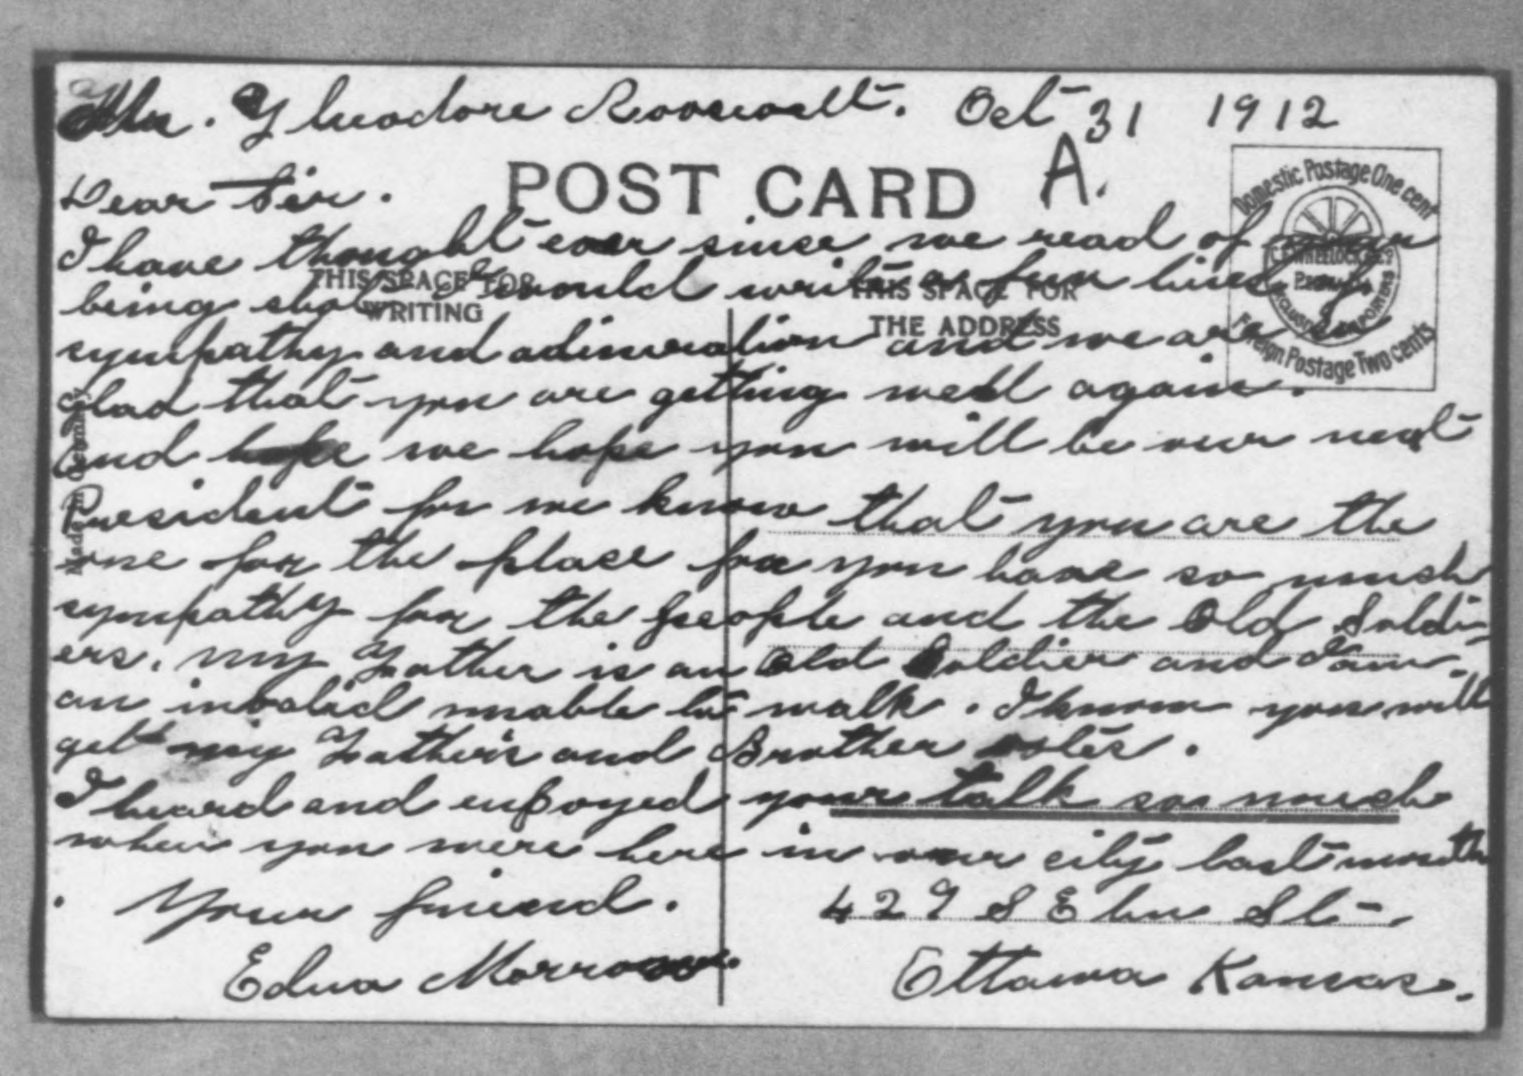 Mr. Theodore Roosevelt. Oct 31 1912
A.
Dear Sir.
POST CARD
Domestic Postage One cent
Foreign Postage Two cents
THIS SPACE FOR
WRITING
THIS SPACE FOR
THE ADDRESS
Made in Germany
I have thought ever since we read of your
being shot I would write a few lines of
sympathy and admiration and we are so
glad that you are getting well again.
And hope we hope you will be our next
President for we know that you are the
one for the place for you have so much
sympathy for the people and the Old Soldi-
ers. My Father is an Old Soldier and I am
an invalid unable to walk. I know you will
get my Father's and Brother votes.
I heard and enjoyed your talk so much
when you were here in our city last month
Your friend.
429 S Elm St.
Edna Morrow.
Ottawa Kansas.